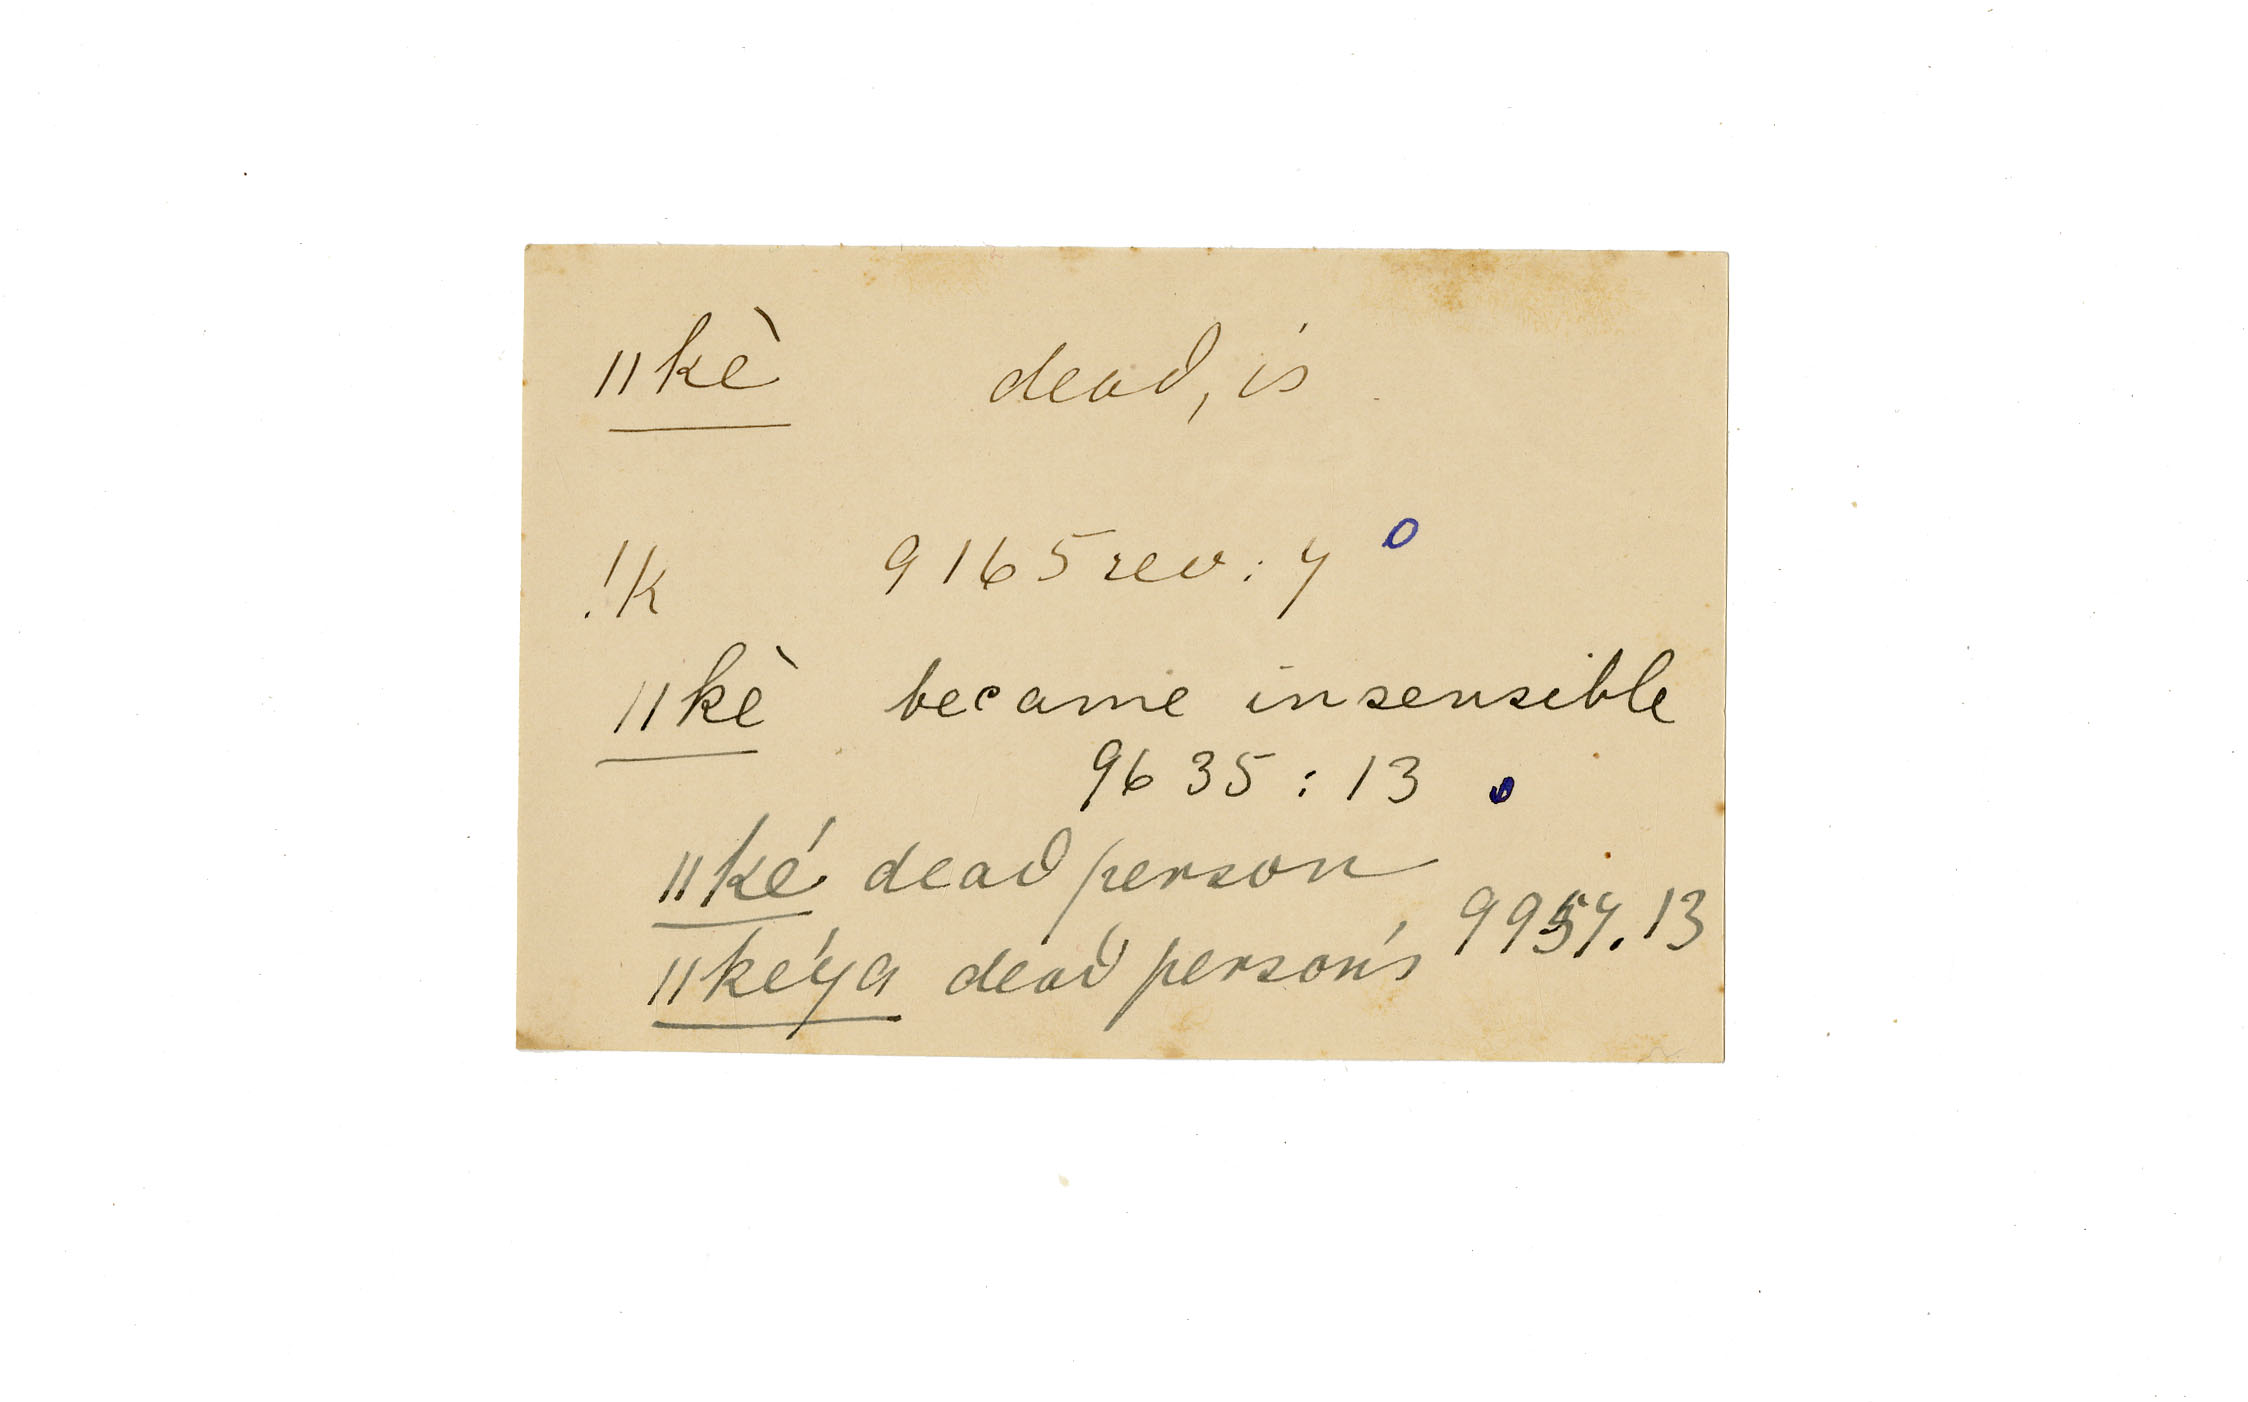 ǁkè dead, is
!k 9165 rev: 7 o
ǁkè became insensible
9635: 13
ǁké dead person
ǁkéya dead person's 9957. 13